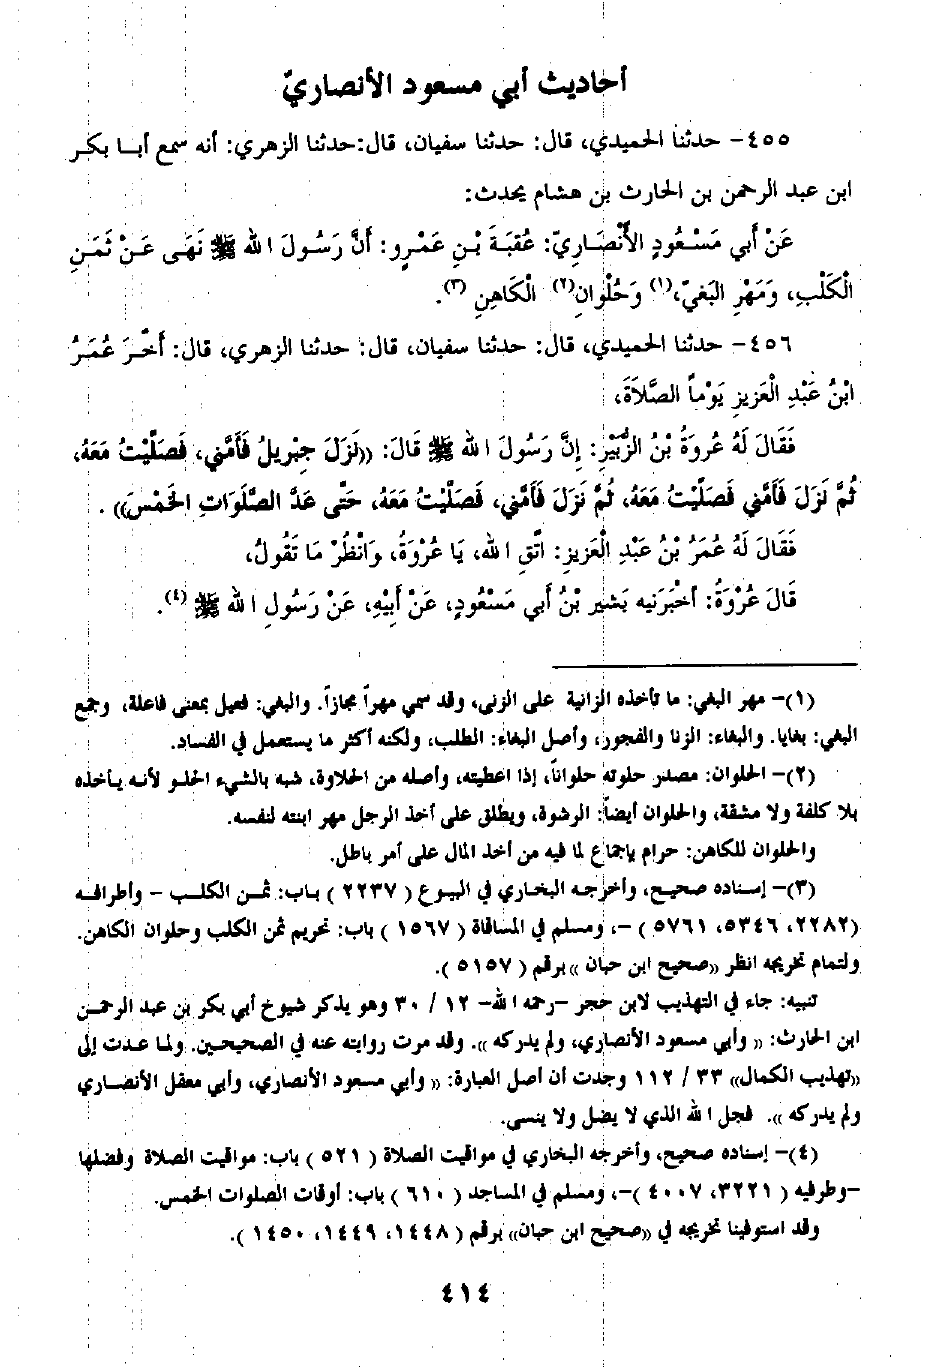 أحاديث أبي مسعود الأنصاريّ
٤٥٥- حدثنا الحميدي، قال: حدثنا سفيان، قال:حدثنا الزهري: أنه سمع أبا بكر
ابن عبد الرحمن بن الحارث بن هشام يحدث:
عَنْ أَبي مَسْعُودٍ الأَنْصَارِيّ: عُقبَةَ بْنِ عَمْرٍو: أَنَّ رَسُولَ اللهِ ﷺ نَهَى عَنْ ثَمَنِ
الْكَلْبِ، وَمَهْرِ البَغيّ،(١) وَحُلْوانِ(٢) الْكَاهِنِ (٣).
٤٥٦- حدثنا الحميدي، قال: حدثنا سفيان، قال: حدثنا الزهري، قال: أَخَّرَ عُمَرُ
ابْنُ عَبْدِ الْعَزيزِ يَوْماً الصَّلاَةَ،
فَقَالَ لَهُ عُروَةُ بْنُ الزُّبَيْرِ: إِنَّ رَسُولَ اللهِ ﷺ قَالَ: ((نَزَلَ جِبْرِيلُ فَأَمَّني، فَصَلَّيْتُ مَعَهُ،
ثُمَّ نَزَلَ فَأَمَّني فَصَلَّيْتُ مَعَهُ، ثُمَّ نَزَلَ فَأَمَّني، فَصَلَّيْتُ مَعَهُ، حَتَّى عَدَّ الصَّلَوَاتِ الخَمْسَ)) .
فَقَالَ لَهُ عُمَرُ بْنُ عَبْدِ الْعَزيزِ: اتَّقِ اللهَ، يَا عُرْوَةُ، وَانْظُرْ مَا تَقُولُ،
قَالَ عُرْوَةُ: أَخْبَرَنيه بَشير بْنُ أَبي مَسْعُودٍ، عَنْ أَبِيْهِ، عَنْ رَسُولِ اللهِ ﷺ (٤).
(١)- مهر البغي: ما تأخذه الزانية على الزنى، وقد سمي مهراً مجازاً. والبغي: فعيل بمعنى فاعلة، وجمع
البغي: بغايا. والبغاء: الزنا والفجور، وأصل البغاء: الطلب، ولكنه أكثر ما يستعمل في الفساد.
(٢)- الحلوان: مصدر حلوته حلواناً، إذا اعطيته، وأصله من الحلاوة، شبه بالشيء الحلو لأنه يأخذه
بلا كلفة ولا مشقة، والحلوان أيضاً: الرشوة، ويطلق على أخذ الرجل مهر ابنته لنفسه.
والحلوان للكاهن: حرام بإجماع لما فيه من أخذ المال على أمر باطل.
(٣)- إسناده صحيح، وأخرجه البخاري في البيوع ( ٢٢٣٧ ) باب: ثمن الكلب - وأطرافه
(٢٢٨٢، ٥٣٤٦، ٥٧٦١ ) -، ومسلم في المساقاة ( ١٥٦٧ ) باب: تحريم ثمن الكلب وحلوان الكاهن.
ولتمام تخريجه انظر ((صحيح ابن حبان )) برقم ( ٥١٥٧ ).
تنبيه: جاء في التهذيب لابن حجر -رحمه الله- ١٢ / ٣٠ وهو يذكر شيوخ أبي بكر بن عبد الرحمن
ابن الحارث: (( وأبي مسعود الأنصاري، ولم يدركه )). وقد مرت روايته عنه في الصحيحين. ولما عدت إلى
((تهذيب الكمال)) ٣٣ / ١١٢ وجدت أن أصل العبارة: (( وأبي مسعود الأنصاري، وأبي معقل الأنصاري
ولم يدركه )). فجل الله الذي لا يضل ولا ينسى.
(٤)- إسناده صحيح، وأخرجه البخاري في مواقيت الصلاة ( ٥٢١ ) باب: مواقيت الصلاة وفضلها
-وطرفيه ( ٣٢٢١، ٤٠٠٧ )-، ومسلم في المساجد ( ٦١٠ ) باب: أوقات الصلوات الخمس.
وقد استوفينا تخريجه في ((صحيح ابن حبان)) برقم ( ١٤٤٨، ١٤٤٩، ١٤٥٠ ).
٤١٤